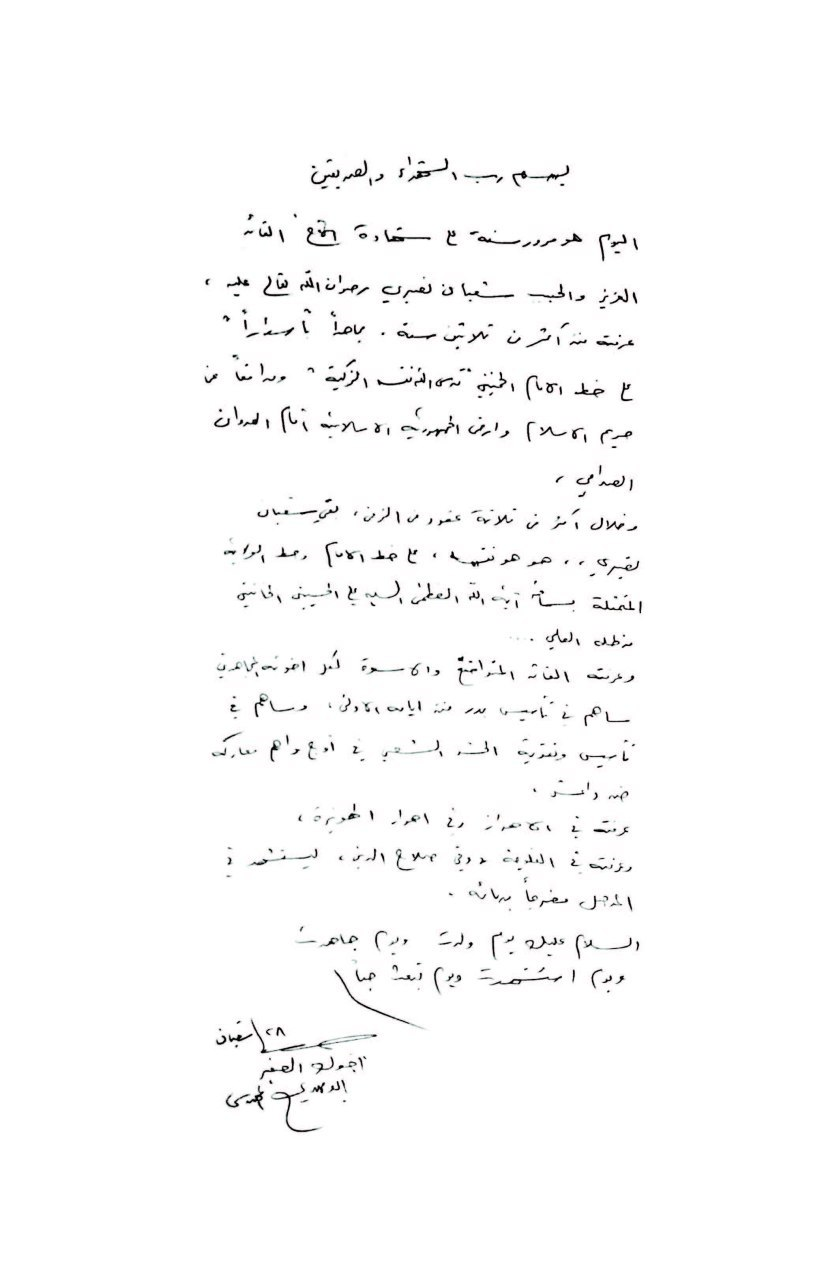 بسم رب الشهداء والصديقين
اليوم هو مرور سنة على شهادة الحاج القائد
العزيز والحبيب شعبان نصيري رضوان الله تعالى عليه ،
عرفته منذ أكثر من ثلاثين سنة . مجاهداً
على خط الامام الخميني "قدس الله نفسه الزكية" ومدافعاً عن
حريم الاسلام وارض الجمهورية الاسلامية أمام العدوان
الصدامي ،
وخلال أكثر من ثلاثة عقود من الزمن ، بقي شعبان
نصيري ، ، هو هو نفسه ، على خط الامام وخط الولاية
المتمثلة بسماحة آية الله العظمى السيد علي الحسيني الخامنئي
مدظله العالي ....
وعرفته القائد المتواضع والاسوة لكل اخوته المجاهدين
ساهم في تأسيس بدر منذ ايامه الاولى ، وساهم في
تأسيس وتقوية الحشد الشعبي في أوج واهم معاركه
ضد داعش .
عرفته في الاهواز وفي اهوار الهويزة ،
وعرفته في العليم وفي صلاح الدين ، ليستشهد في
الموصل مضرجاً بدمائه .
السلام عليك يوم ولدت ويوم جاهدت
ويوم استشهدت ويوم تبعث حياً
٢٨/شعبان
اخوك الصغير
ابو مهدي المهندس